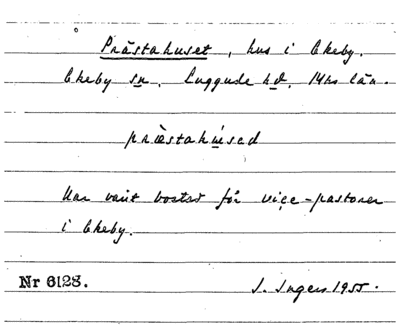 Prästahuset, hus i Ekeby.
Ekeby sn. Luggude hd. Mhs län.
præstahúsed
Har varit bostad för vice-pastorer
i Ekeby.
Nr 6128. I. Ingers 1955.